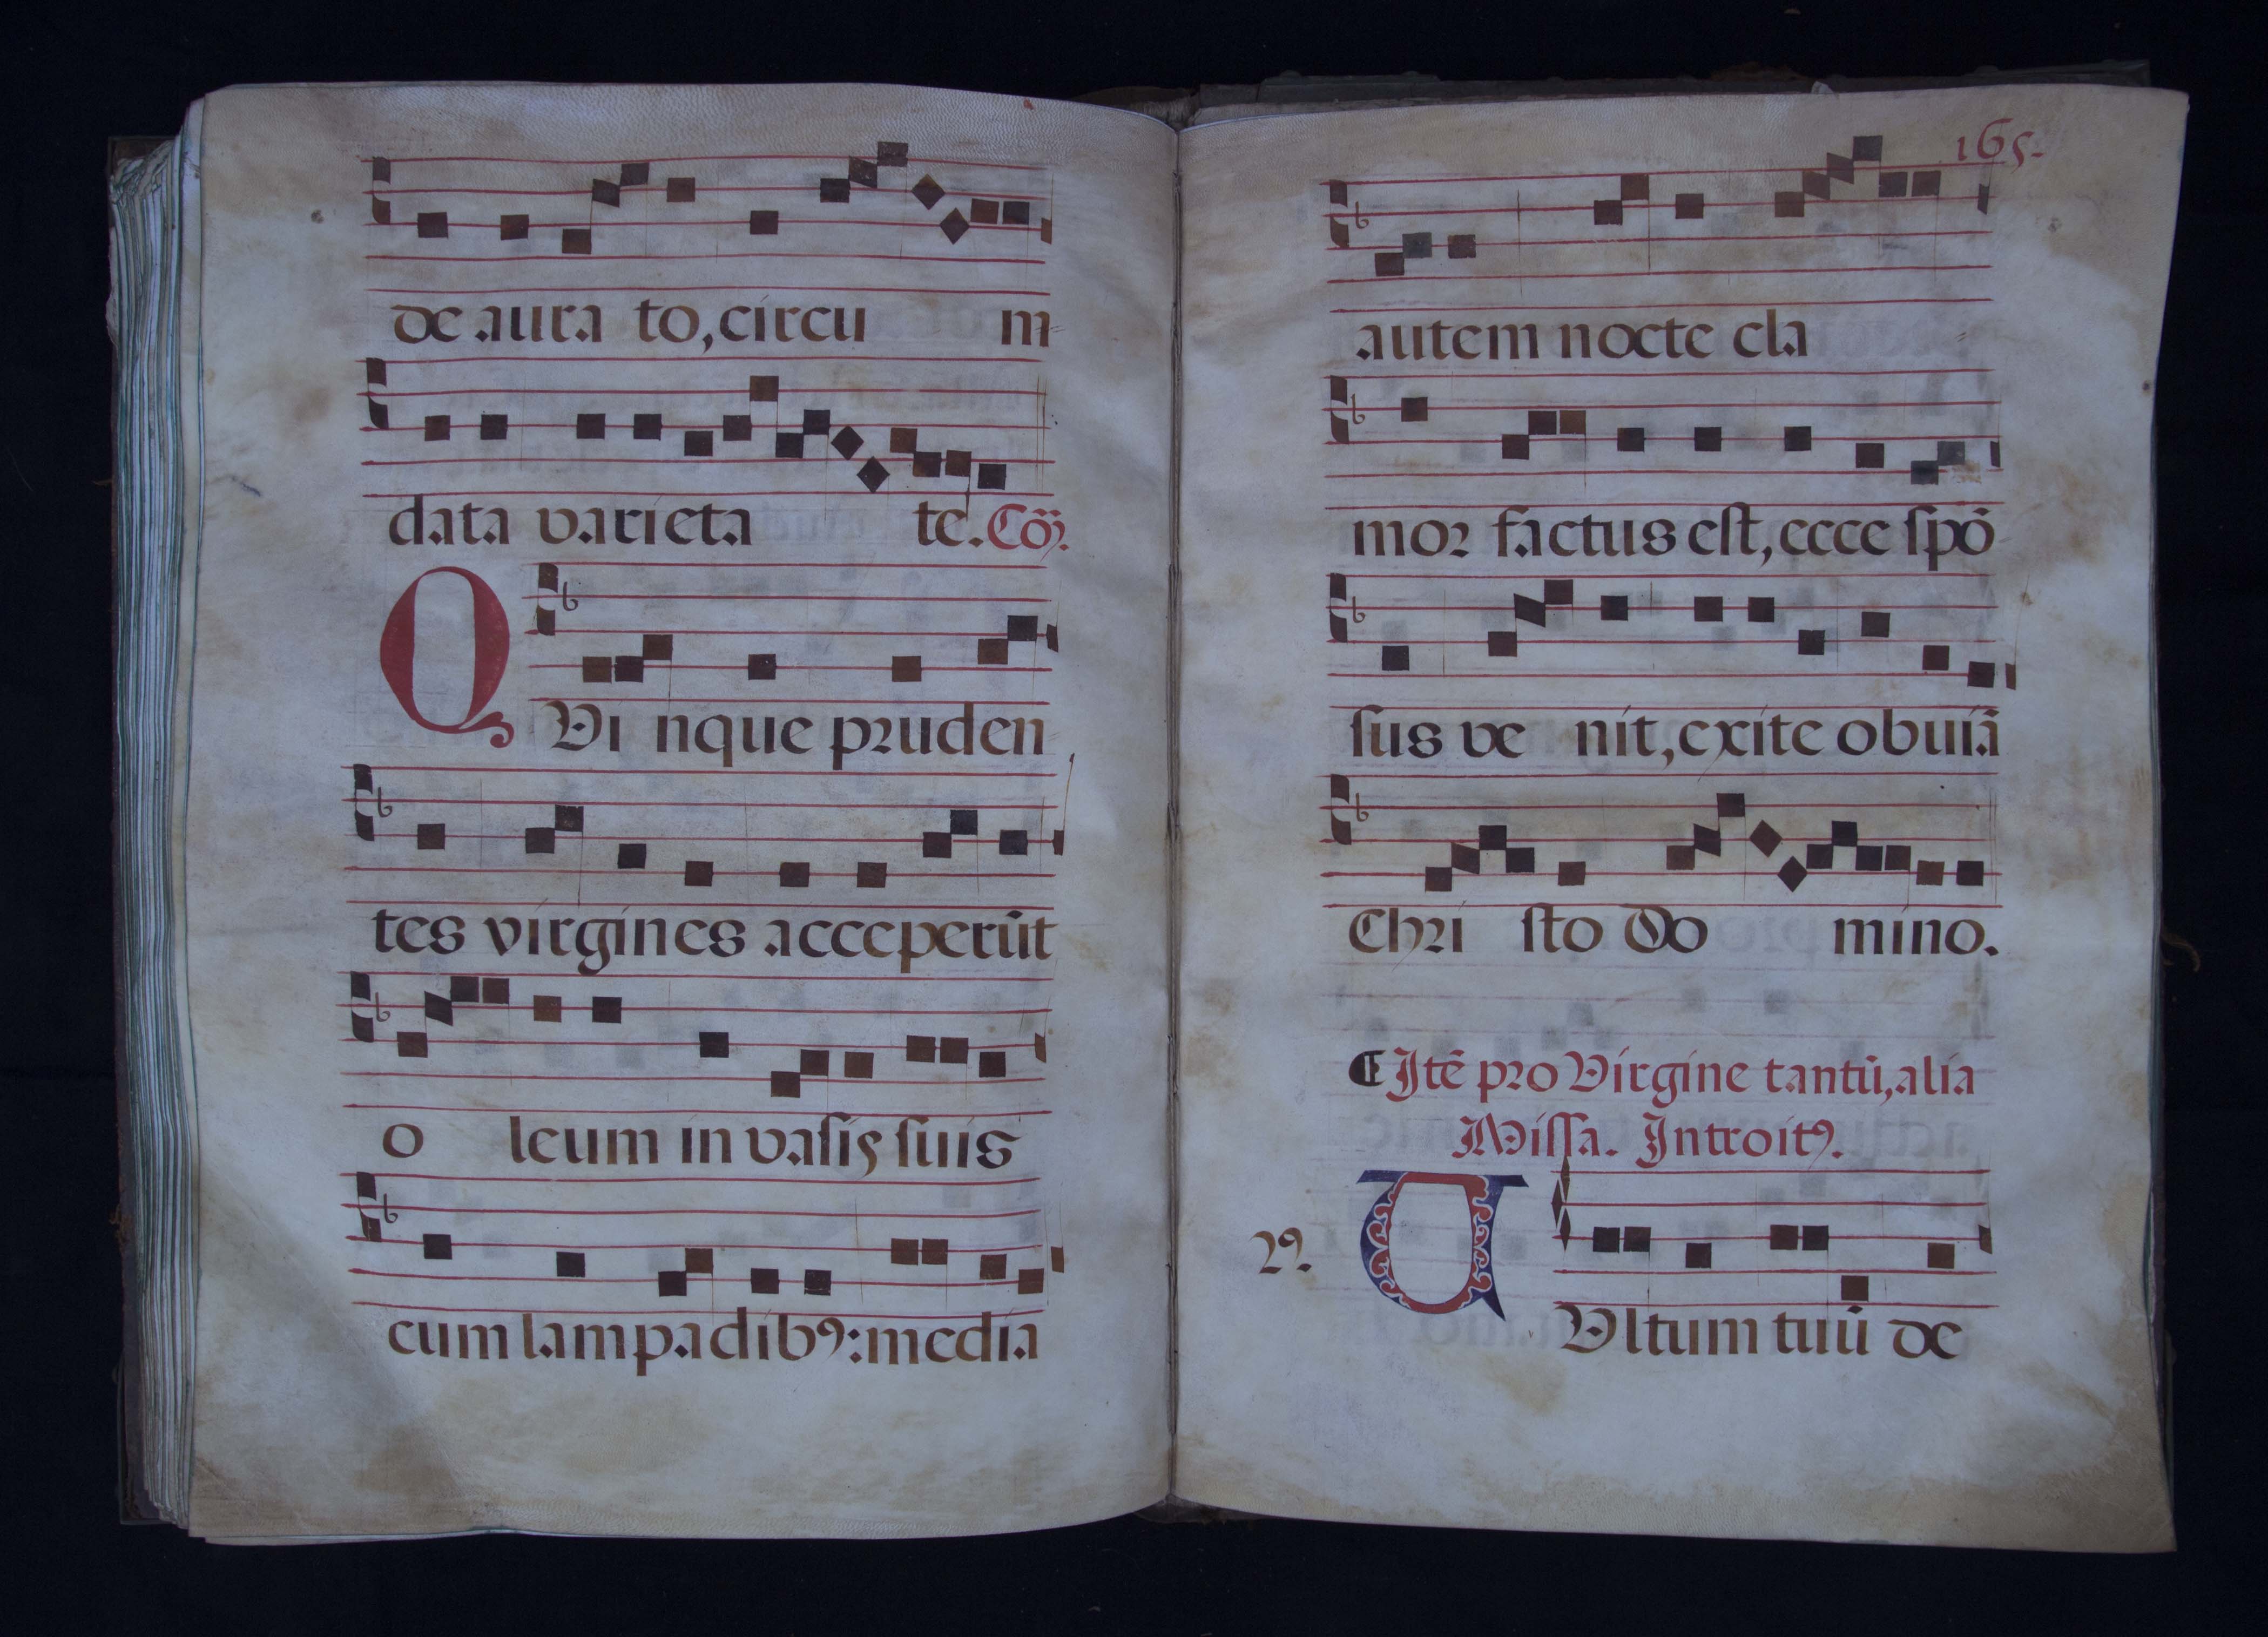 de aura to, circu m
data varieta te. Cõȝ.
QVi nque pruden
tes virgines acceperũt
o leum in vasis suis
cum lampadibꝰ: media
165.
autem nocte cla
mor factus est, ecce spõ
sus ve nit, exite obuiã
Chri sto Do mino.
¶ Itẽ pro Virgine tantũ, alia
Missa. Introitꝰ.
29.
VVltum tuũ de